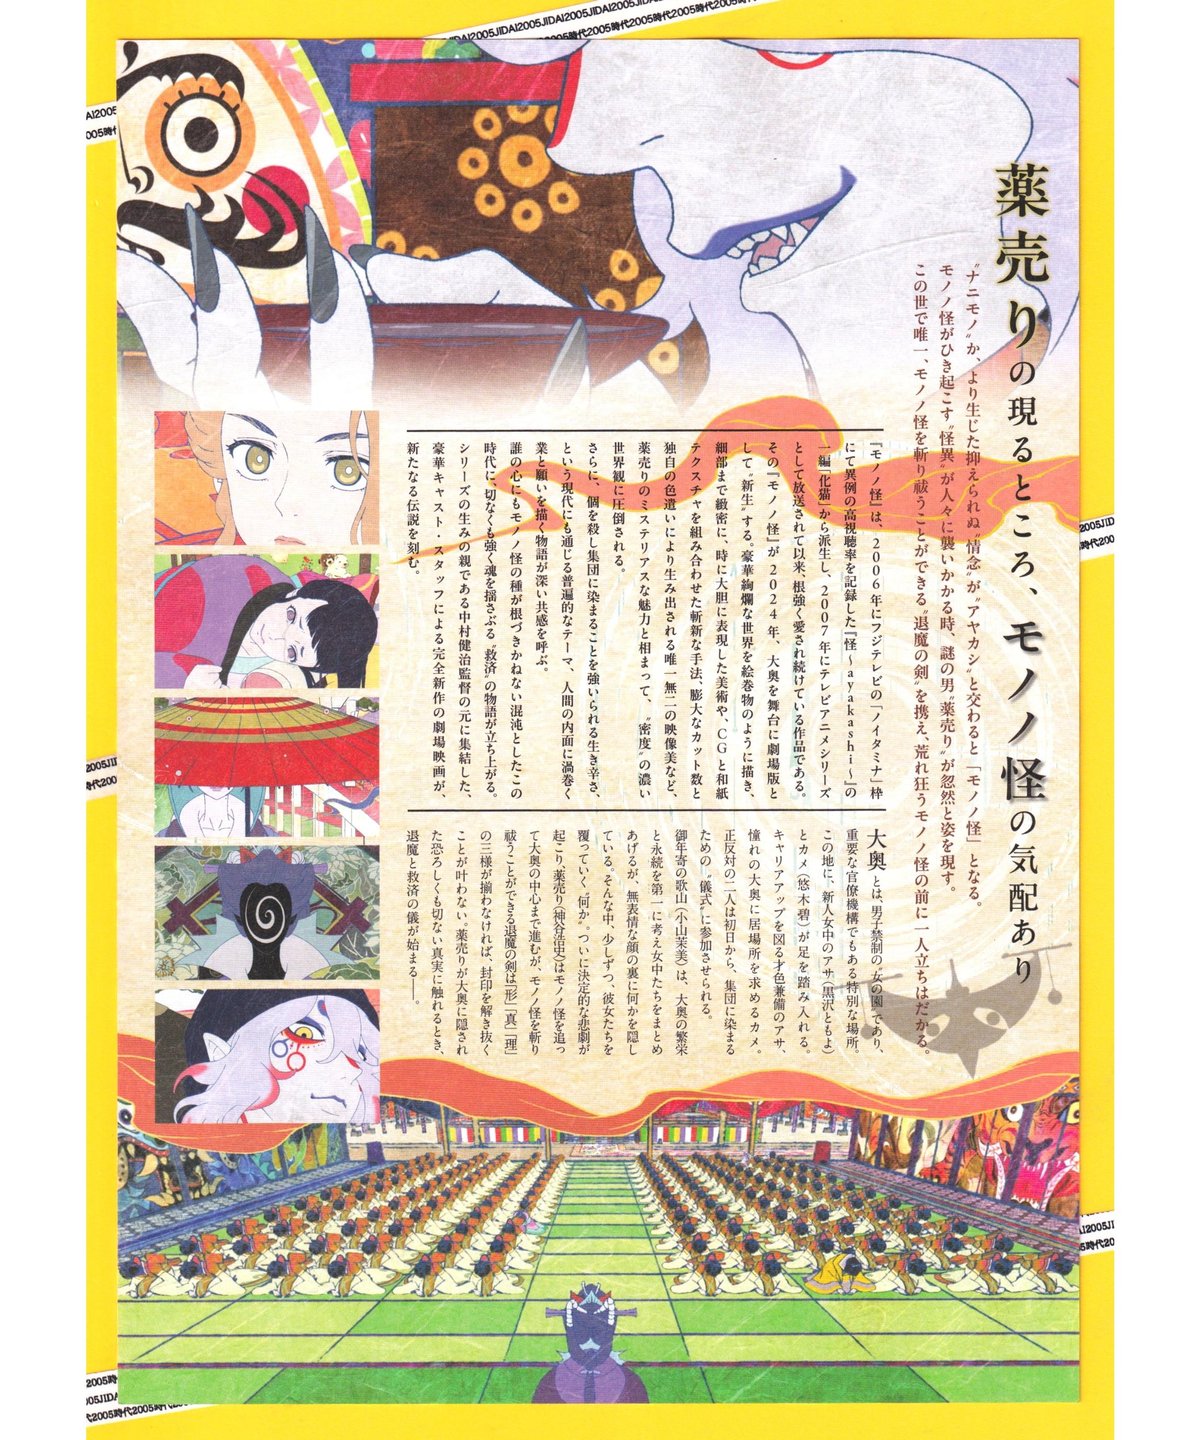 薬売りの現るところ、モノノ怪の気配あり
〝ナニモノ〟か、より生じた抑えられぬ〝情念〟が〝アヤカシ〟と交わると「モノノ怪」となる。
モノノ怪がひき起こす〝怪異〟が人々に襲いかかる時、謎の男〝薬売り〟が忽然と姿を現す。
この世で唯一、モノノ怪を斬り祓うことができる〝退魔の剣〟を携え、荒れ狂うモノノ怪の前に一人立ちはだかる。
『モノノ怪』は、2006年にフジテレビの「ノイタミナ」枠
にて異例の高視聴率を記録した『怪〜ayakashi〜』の
一編「化猫」から派生し、2007年にテレビアニメシリーズ
として放送されて以来、根強く愛され続けている作品である。
その『モノノ怪』が2024年、大奥を舞台に劇場版と
して〝新生〟する。豪華絢爛な世界を絵巻物のように描き、
細部まで緻密に、時に大胆に表現した美術や、CGと和紙
テクスチャを組み合わせた斬新な手法、膨大なカット数と
独自の色遣いにより生み出される唯一無二の映像美など、
薬売りのミステリアスな魅力と相まって、〝密度〟の濃い
世界観に圧倒される。
さらに、個を殺し集団に染まることを強いられる生き辛さ、
という現代にも通じる普遍的なテーマ、人間の内面に渦巻く
業と願いを描く物語が深い共感を呼ぶ。
誰の心にもモノノ怪の種が根づきかねない混沌としたこの
時代に、切なくも強く魂を揺さぶる〝救済〟の物語が立ち上がる。
シリーズの生みの親である中村健治監督の元に集結した、
豪華キャスト・スタッフによる完全新作の劇場映画が、
新たなる伝説を刻む。
大奥とは、男子禁制の〝女の園〟であり、
重要な官僚機構でもある特別な場所。
この地に、新人女中のアサ(黒沢ともよ)
とカメ(悠木碧)が足を踏み入れる。
キャリアアップを図る才色兼備のアサ、
憧れの大奥に居場所を求めるカメ。
正反対の二人は初日から、集団に染まる
ための〝儀式〟に参加させられる。
御年寄の歌山(小山茉美)は、大奥の繁栄
と永続を第一に考え女中たちをまとめ
あげるが、無表情な顔の裏に何かを隠し
ている。そんな中、少しずつ、彼女たちを
覆っていく〝何か〟。ついに決定的な悲劇が
起こり、薬売り(神谷浩史)はモノノ怪を追っ
て大奥の中心まで進むが、モノノ怪を斬り
祓うことができる退魔の剣は「形」「真」「理」
の三様が揃わなければ、封印を解き抜く
ことが叶わない。薬売りが大奥に隠され
た恐ろしくも切ない真実に触れるとき、
退魔と救済の儀が始まる——。